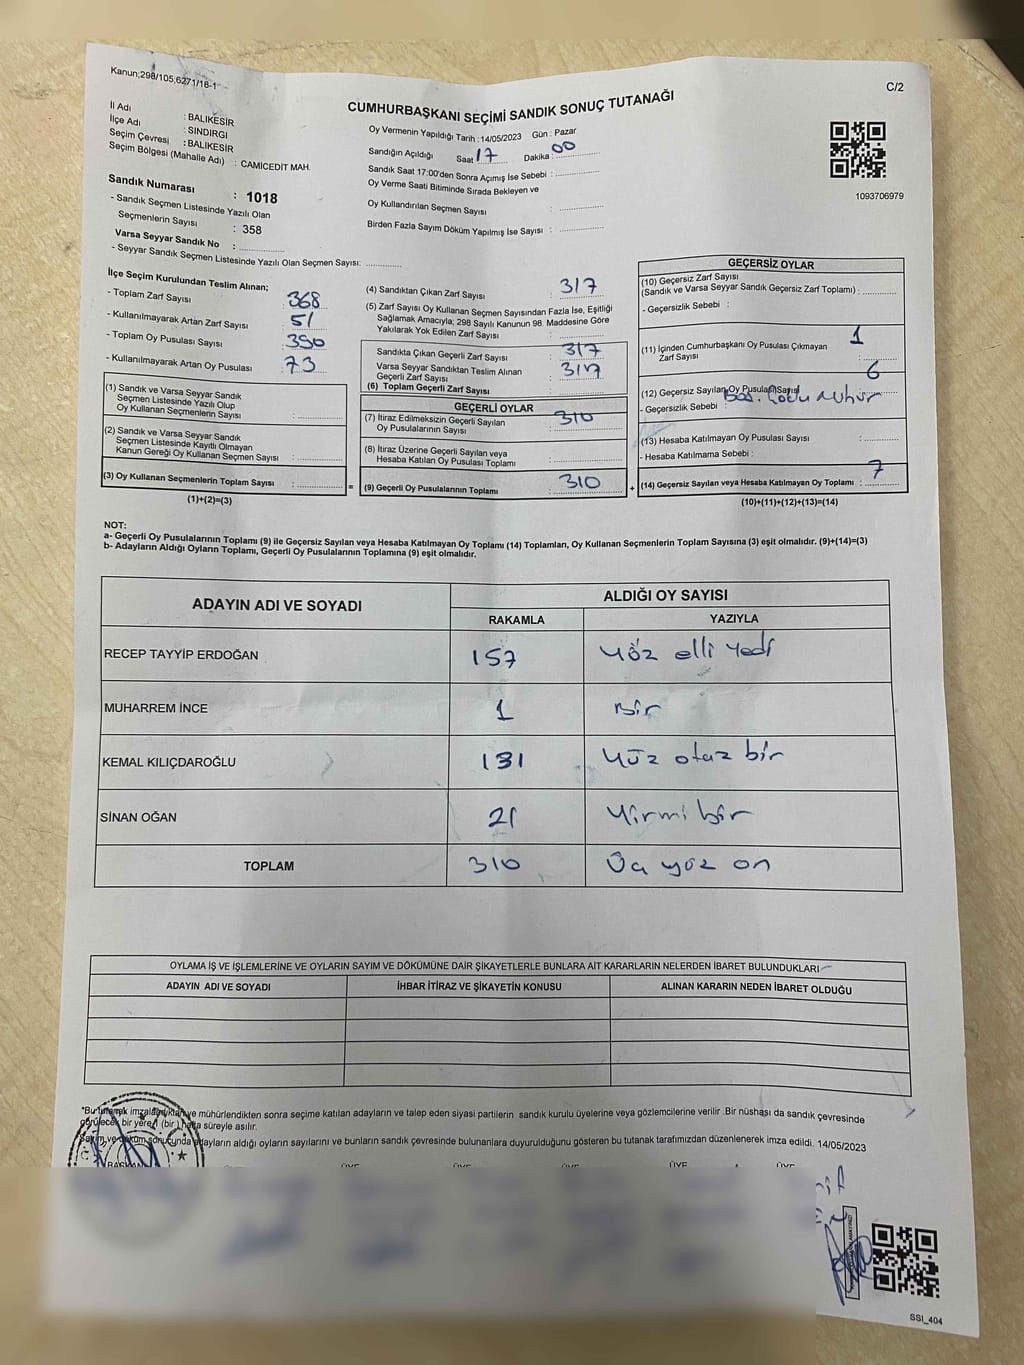 Kanun;298/105,6271/18-1
C/2
CUMHURBAŞKANI SEÇİMİ SANDIK SONUÇ TUTANAĞI
İl Adı : BALIKESİR
İlçe Adı : SINDIRGI
Seçim Çevresi : BALIKESİR
Seçim Bölgesi (Mahalle Adı) : CAMİCEDİT MAH.
Sandık Numarası : 1018
- Sandık Seçmen Listesinde Yazılı Olan
Seçmenlerin Sayısı : 358
Varsa Seyyar Sandık No : ..............
- Seyyar Sandık Seçmen Listesinde Yazılı Olan Seçmen Sayısı: ............
Oy Vermenin Yapıldığı Tarih : 14/05/2023 Gün : Pazar
Sandığın Açıldığı Saat 17 Dakika : 00
Sandık Saat 17:00'den Sonra Açımış İse Sebebi : ..............
Oy Verme Saati Bitiminde Sırada Bekleyen ve
Oy Kullandırılan Seçmen Sayısı : ..............
Birden Fazla Sayım Döküm Yapılmış İse Sayısı : ..............
1093706979
İlçe Seçim Kurulundan Teslim Alınan;
- Toplam Zarf Sayısı : 368
- Kullanılmayarak Artan Zarf Sayısı : 51
- Toplam Oy Pusulası Sayısı : 390
- Kullanılmayarak Artan Oy Pusulası : 73
(1) Sandık ve Varsa Seyyar Sandık
Seçmen Listesinde Yazılı Olup
Oy Kullanan Seçmenlerin Sayısı : ..............
(2) Sandık ve Varsa Seyyar Sandık
Seçmen Listesinde Kayıtlı Olmayan
Kanun Gereği Oy Kullanan Seçmen Sayısı : ..............
(3) Oy Kullanan Seçmenlerin Toplam Sayısı : ..............
(1)+(2)=(3)
(4) Sandıktan Çıkan Zarf Sayısı : 317
(5) Zarf Sayısı Oy Kullanan Seçmen Sayısından Fazla İse, Eşitliği
Sağlamak Amacıyla; 298 Sayılı Kanunun 98. Maddesine Göre
Yakılarak Yok Edilen Zarf Sayısı : ..............
Sandıkta Çıkan Geçerli Zarf Sayısı : 317
Varsa Seyyar Sandıktan Teslim Alınan
Geçerli Zarf Sayısı : 317
(6) Toplam Geçerli Zarf Sayısı
GEÇERLİ OYLAR
(7) İtiraz Edilmeksizin Geçerli Sayılan
Oy Pusulalarının Sayısı : 310
(8) İtiraz Üzerine Geçerli Sayılan veya
Hesaba Katılan Oy Pusulası Toplamı : ..............
= (9) Geçerli Oy Pusulalarının Toplamı : 310
GEÇERSİZ OYLAR
(10) Geçersiz Zarf Sayısı
(Sandık ve Varsa Seyyar Sandık Geçersiz Zarf Toplamı) : ............
- Geçersizlik Sebebi :
(11) İçinden Cumhurbaşkanı Oy Pusulası Çıkmayan
Zarf Sayısı : 1
(12) Geçersiz Sayılan Oy Pusulası Sayısı 6
- Geçersizlik Sebebi :
(13) Hesaba Katılmayan Oy Pusulası Sayısı : ............
- Hesaba Katılmama Sebebi :
+ (14) Geçersiz Sayılan veya Hesaba Katılmayan Oy Toplamı : 7
(10)+(11)+(12)+(13)=(14)
NOT:
a- Geçerli Oy Pusulalarının Toplamı (9) ile Geçersiz Sayılan veya Hesaba Katılmayan Oy Toplamı (14) Toplamları, Oy Kullanan Seçmenlerin Toplam Sayısına (3) eşit olmalıdır. (9)+(14)=(3)
b- Adayların Aldığı Oyların Toplamı, Geçerli Oy Pusulalarının Toplamına (9) eşit olmalıdır.
ADAYIN ADI VE SOYADI ALDIĞI OY SAYISI
RAKAMLA YAZIYLA
RECEP TAYYİP ERDOĞAN 157 Yüz elli Yedi
MUHARREM İNCE 1 Bir
KEMAL KILIÇDAROĞLU 131 Yüz otuz bir
SİNAN OĞAN 21 Yirmi bir
TOPLAM 310 Üç yüz on
OYLAMA İŞ VE İŞLEMLERİNE VE OYLARIN SAYIM VE DÖKÜMÜNE DAİR ŞİKAYETLERLE BUNLARA AİT KARARLARIN NELERDEN İBARET BULUNDUKLARI
ADAYIN ADI VE SOYADI İHBAR İTİRAZ VE ŞİKAYETİN KONUSU ALINAN KARARIN NEDEN İBARET OLDUĞU
*Bu tutanak imzalandıktan ve mühürlendikten sonra seçime katılan adayların ve talep eden siyasi partilerin sandık kurulu üyelerine veya gözlemcilerine verilir .Bir nüshası da sandık çevresinde
görülecek bir yere (bir ) hafta süreyle asılır.
Sayım ve döküm sonucunda adayların aldığı oyların sayılarını ve bunların sandık çevresinde bulunanlara duyurulduğunu gösteren bu tutanak tarafımızdan düzenlenerek imza edildi. 14/05/2023
BAŞKAN ÜYE ÜYE ÜYE ÜYE ÜYE
SSI_404